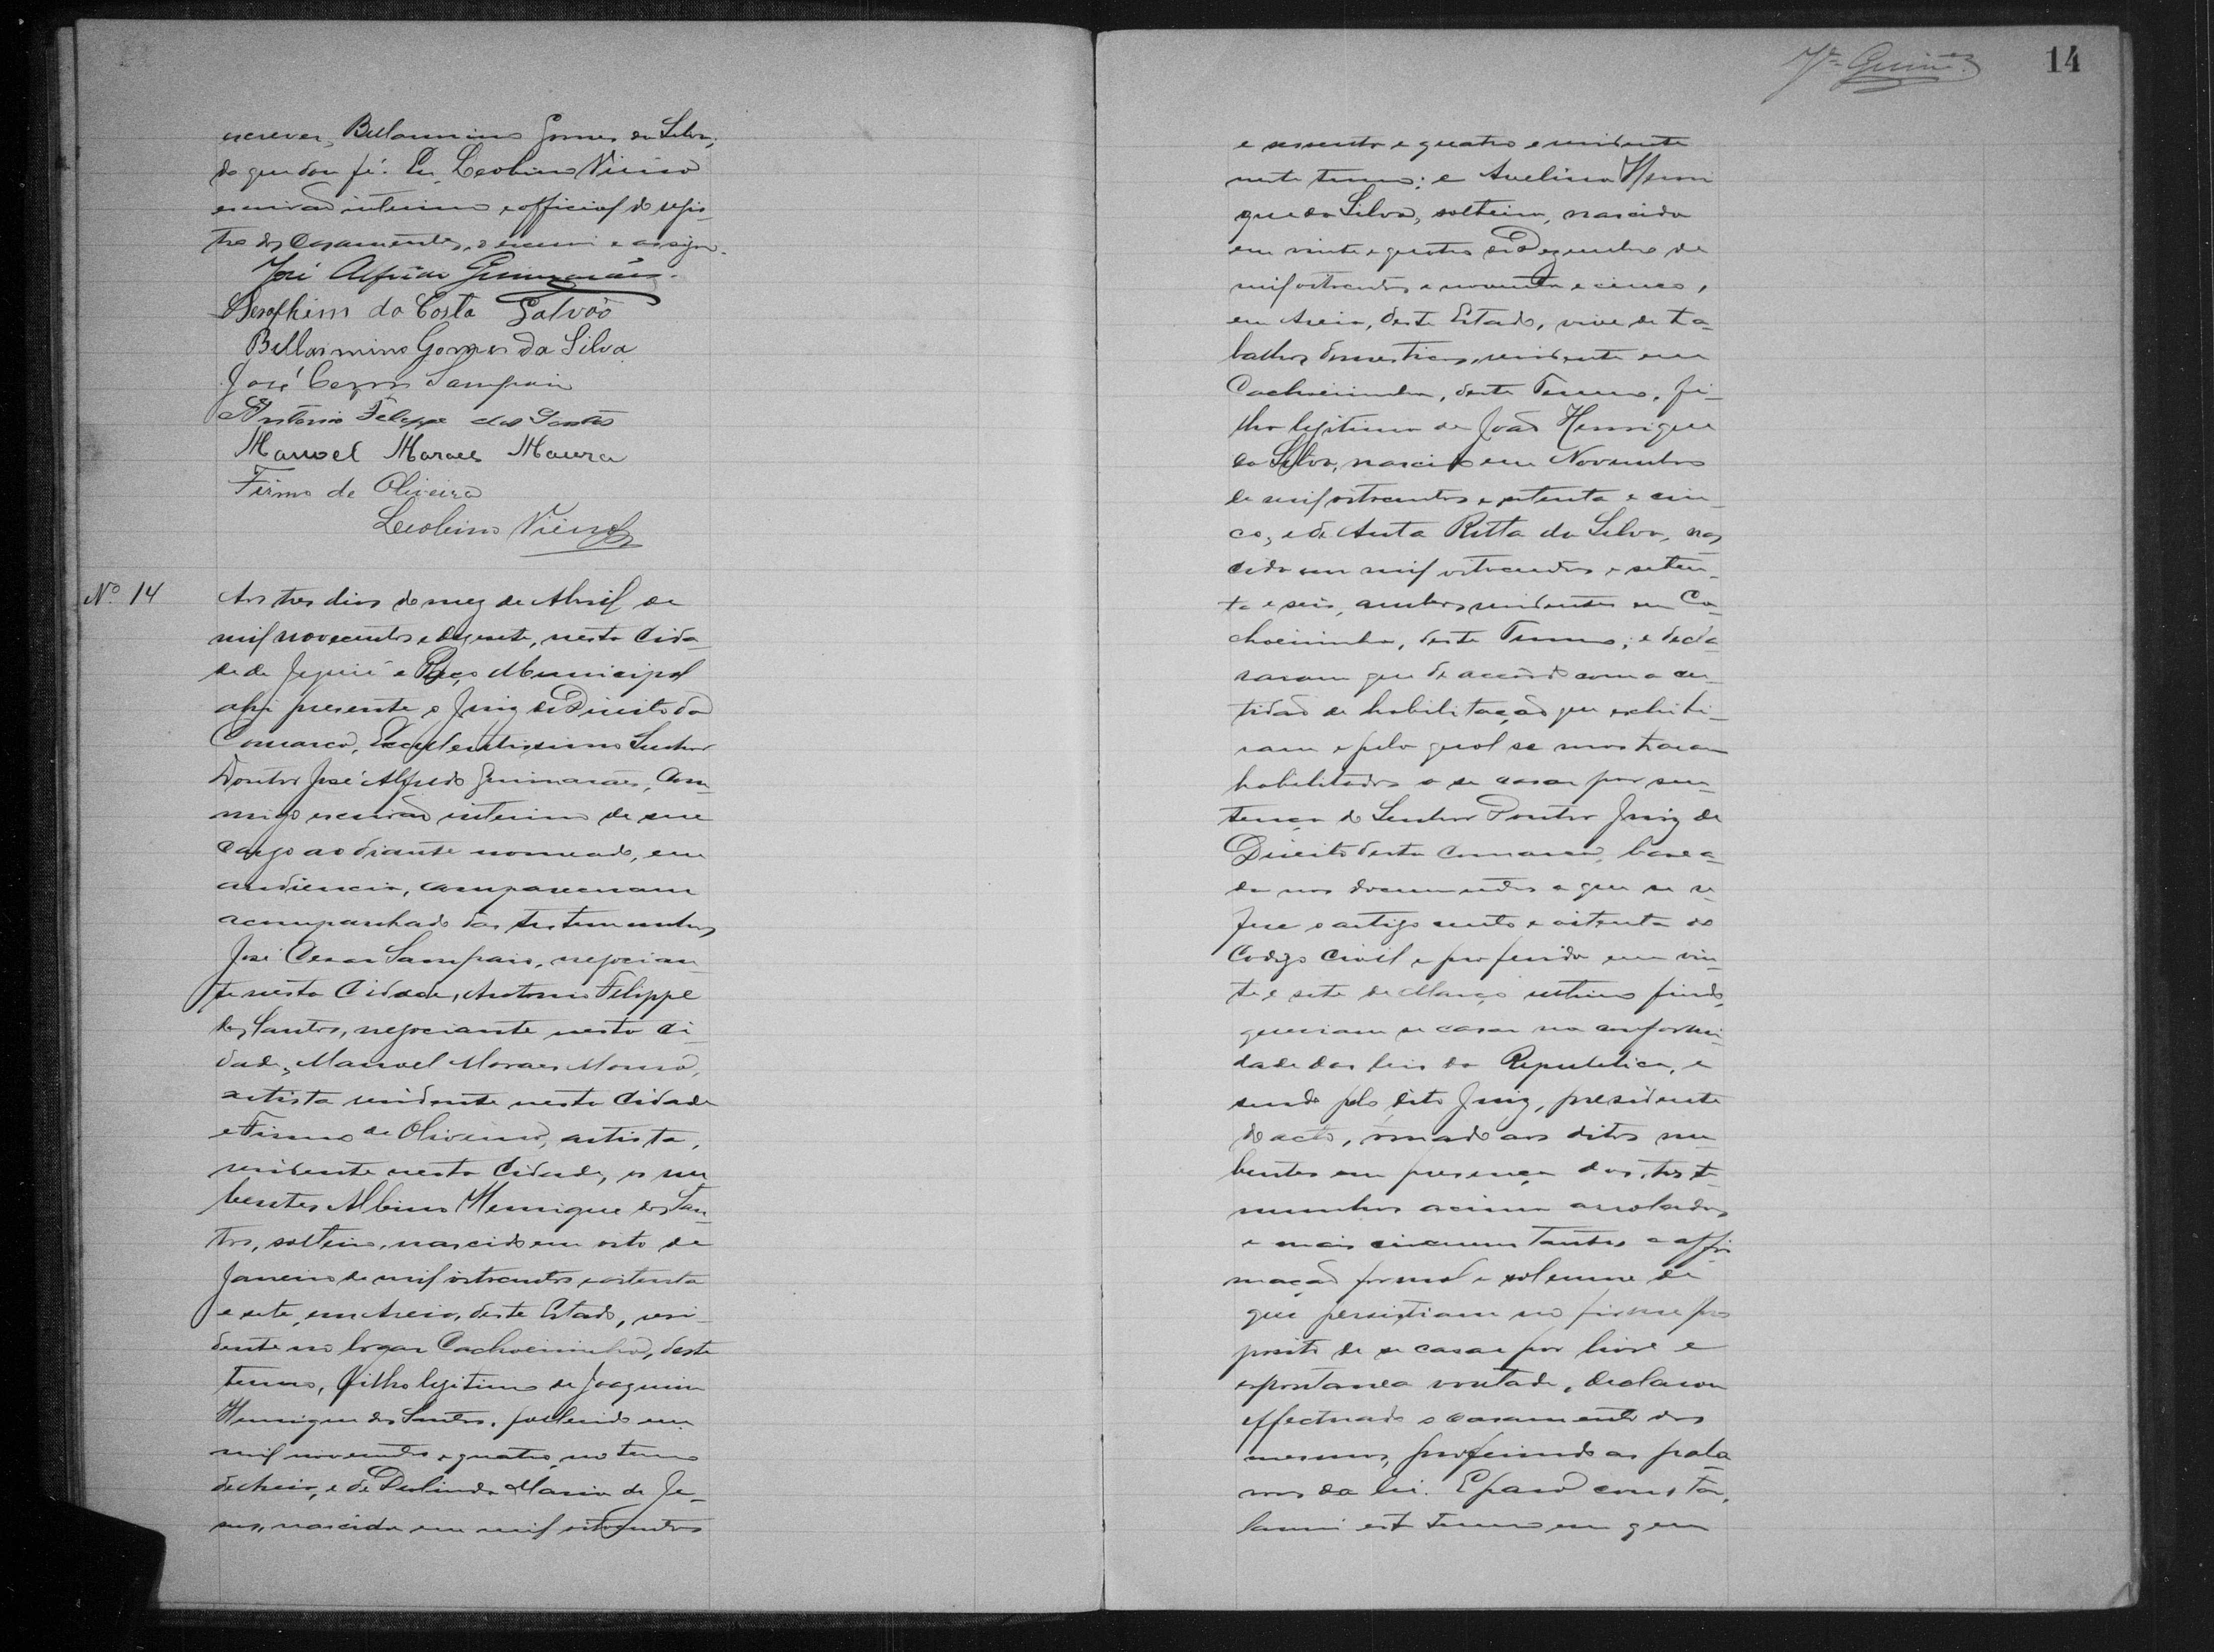 escrever, Bellarmino Gomes da Silva,
do que dou fé. Eu, Leolino
escrivão interino e official do regis-
tro dos Casamentos, o escrevi e assigno.
José Alfredo Guimarães.
Seraphim da Costa Galvão
Bellarmino Gomes da Silva
José Cezar Sampaio
Antonio Felippe dos Santos
Manoel Moraes Moura
Firmo de Oliveira
Leolino
Nº 14
Aos tres dias do mez de Abril de
mil novecentos e dezesete, nesta Cida-
de de Jequié e Paço Municipal
ahi presente o Juiz de Direito da
Comarca, Excellentissimo Senhor
Doutor José Alfredo Guimarães, com-
migo escrivão interino de seu
cargo ao diante nomeado, em
audiencia, compareceram
acompanhado das testemunhas
José Cesar Sampaio, negocian-
te nesta Cidade, Antonio Felippe
dos Santos, negociante nesta Ci-
dade, Manoel Moraes Moura,
artista residente nesta Cidade
e Firmo de Oliveira, artista,
residente nesta Cidade, os nu-
bentes Albino Henrique dos San-
tos, solteiro, nascido em oito de
Janeiro de mil oitocentos e oitenta
e sete, em Areia, deste Estado, resi-
dente no logar Cachoeirinha, deste
termo, filho legitimo de Joaquim
Henrique dos Santos, fallecido em
mil novecentos e quatro, no termo
de Areia, e de Deolinda Maria de Je-
sus, nascida em mil oitocentos
Guimes.
14
e sessenta e quatro e residente
neste termo; e Avelina Henri
que da Silva, solteira, nascida
em vinte e quatro de Dezembro de
mil oitocentos e noventa e cinco,
em Areia, deste Estado, vive de tra-
balhos domesticos, residente em
Cachoeirinha, deste Termo, fi-
lha legitima de João Henrique
da Silva, nascido em Novembro
de mil oitocentos e setenta e cin-
co, e de Anta Ritta da Silva, nas
cida em mil oitocentos e seten-
ta e seis, ambos residentes em Ca-
choeirinha, deste Termo; e decla-
raram que de accordo com a cer-
tidão de habilitação que exhibi-
ram e pela qual se mostraram
habilitados a se casar por sen-
tença do Senhor Doutor Juiz de
Direito desta Comarca, basea-
da nos documentos a que se re-
fere o artigo cento e oitenta do
Codigo Civil e proferida em vin-
te e sete de Março ultimo findo,
queriam se casar na conformi-
dade das leis da Republica, e
sendo pelo dito Juiz, presidente
do acto, ouvido aos ditos nu-
bentes em presença das teste-
munhas acima arroladas
e mais circumstantes a affir
mação formal e solemne de
que persistiam no firme pro
posito de se casar por livre e
espontanea vontade, declarou
effectuado o casamento dos
mesmos, proferindo as pala-
vras da lei. E para constar,
lavrei este termo em que